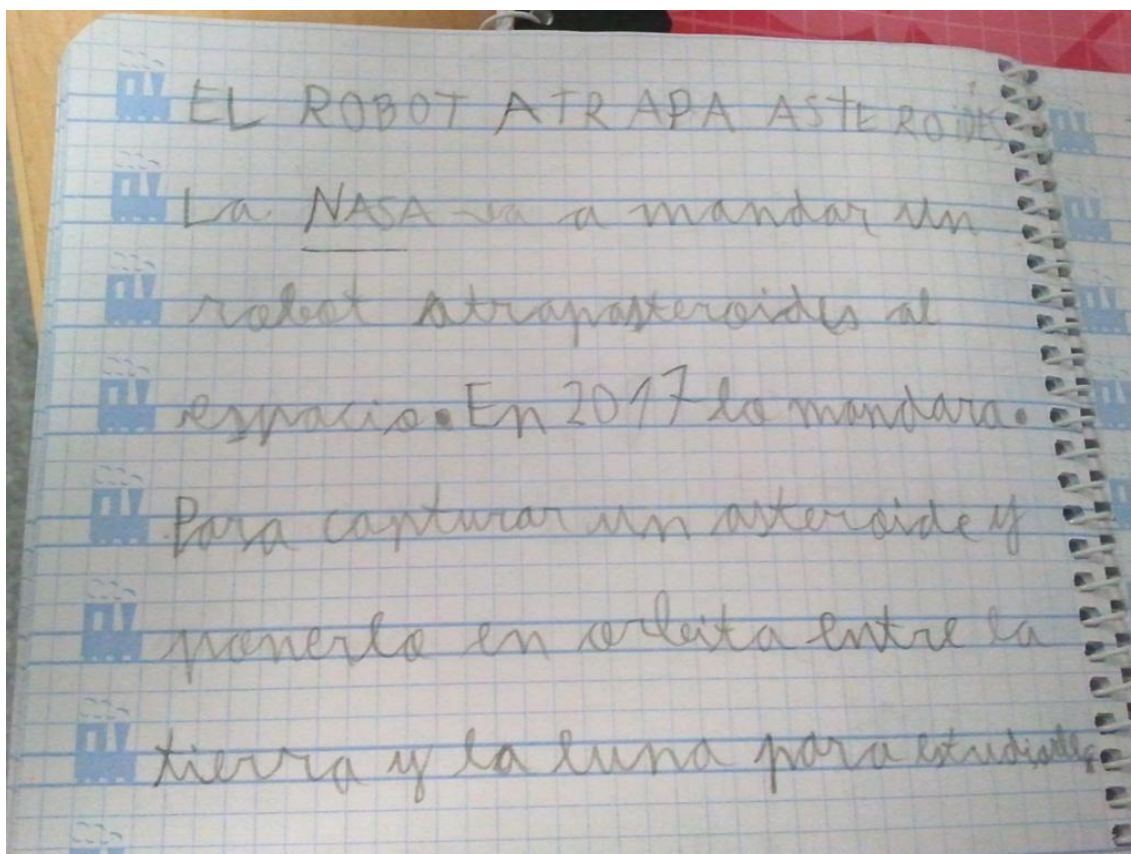 EL ROBOT ATRAPA ASTEROIDES
La NASA va a mandar un
robot atrapasteroides al
espacio. En 2017 lo mandara.
Para capturar un asteroide y
ponerlo en orbita entre la
tierra y la luna para